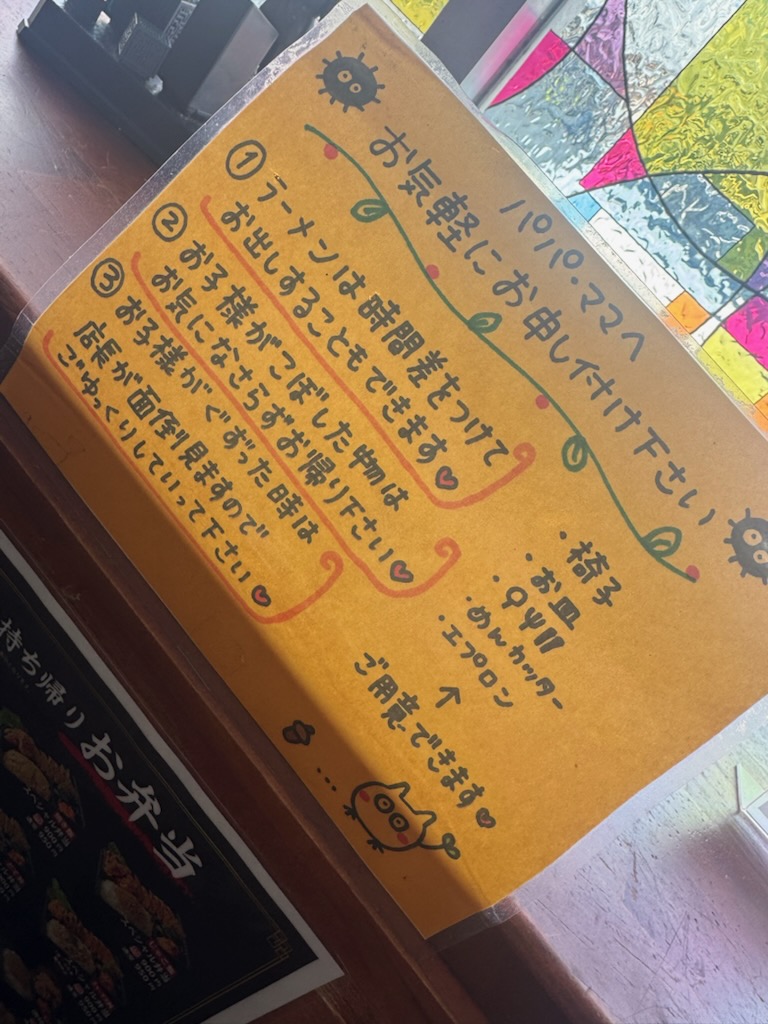 パパ・ママへ
お気軽にお申し付け下さい
① ラーメンは時間差をつけて
お出しすることもできます
② お子様がこぼした物は
お気になさらずお帰り下さい
③ お子様がぐずった時は
店長が面倒見ますので
ごゆっくりしていって下さい
・椅子
・お皿
・
・めんカッター
・エプロン
↑
ご用意できます
持ち帰りお弁当